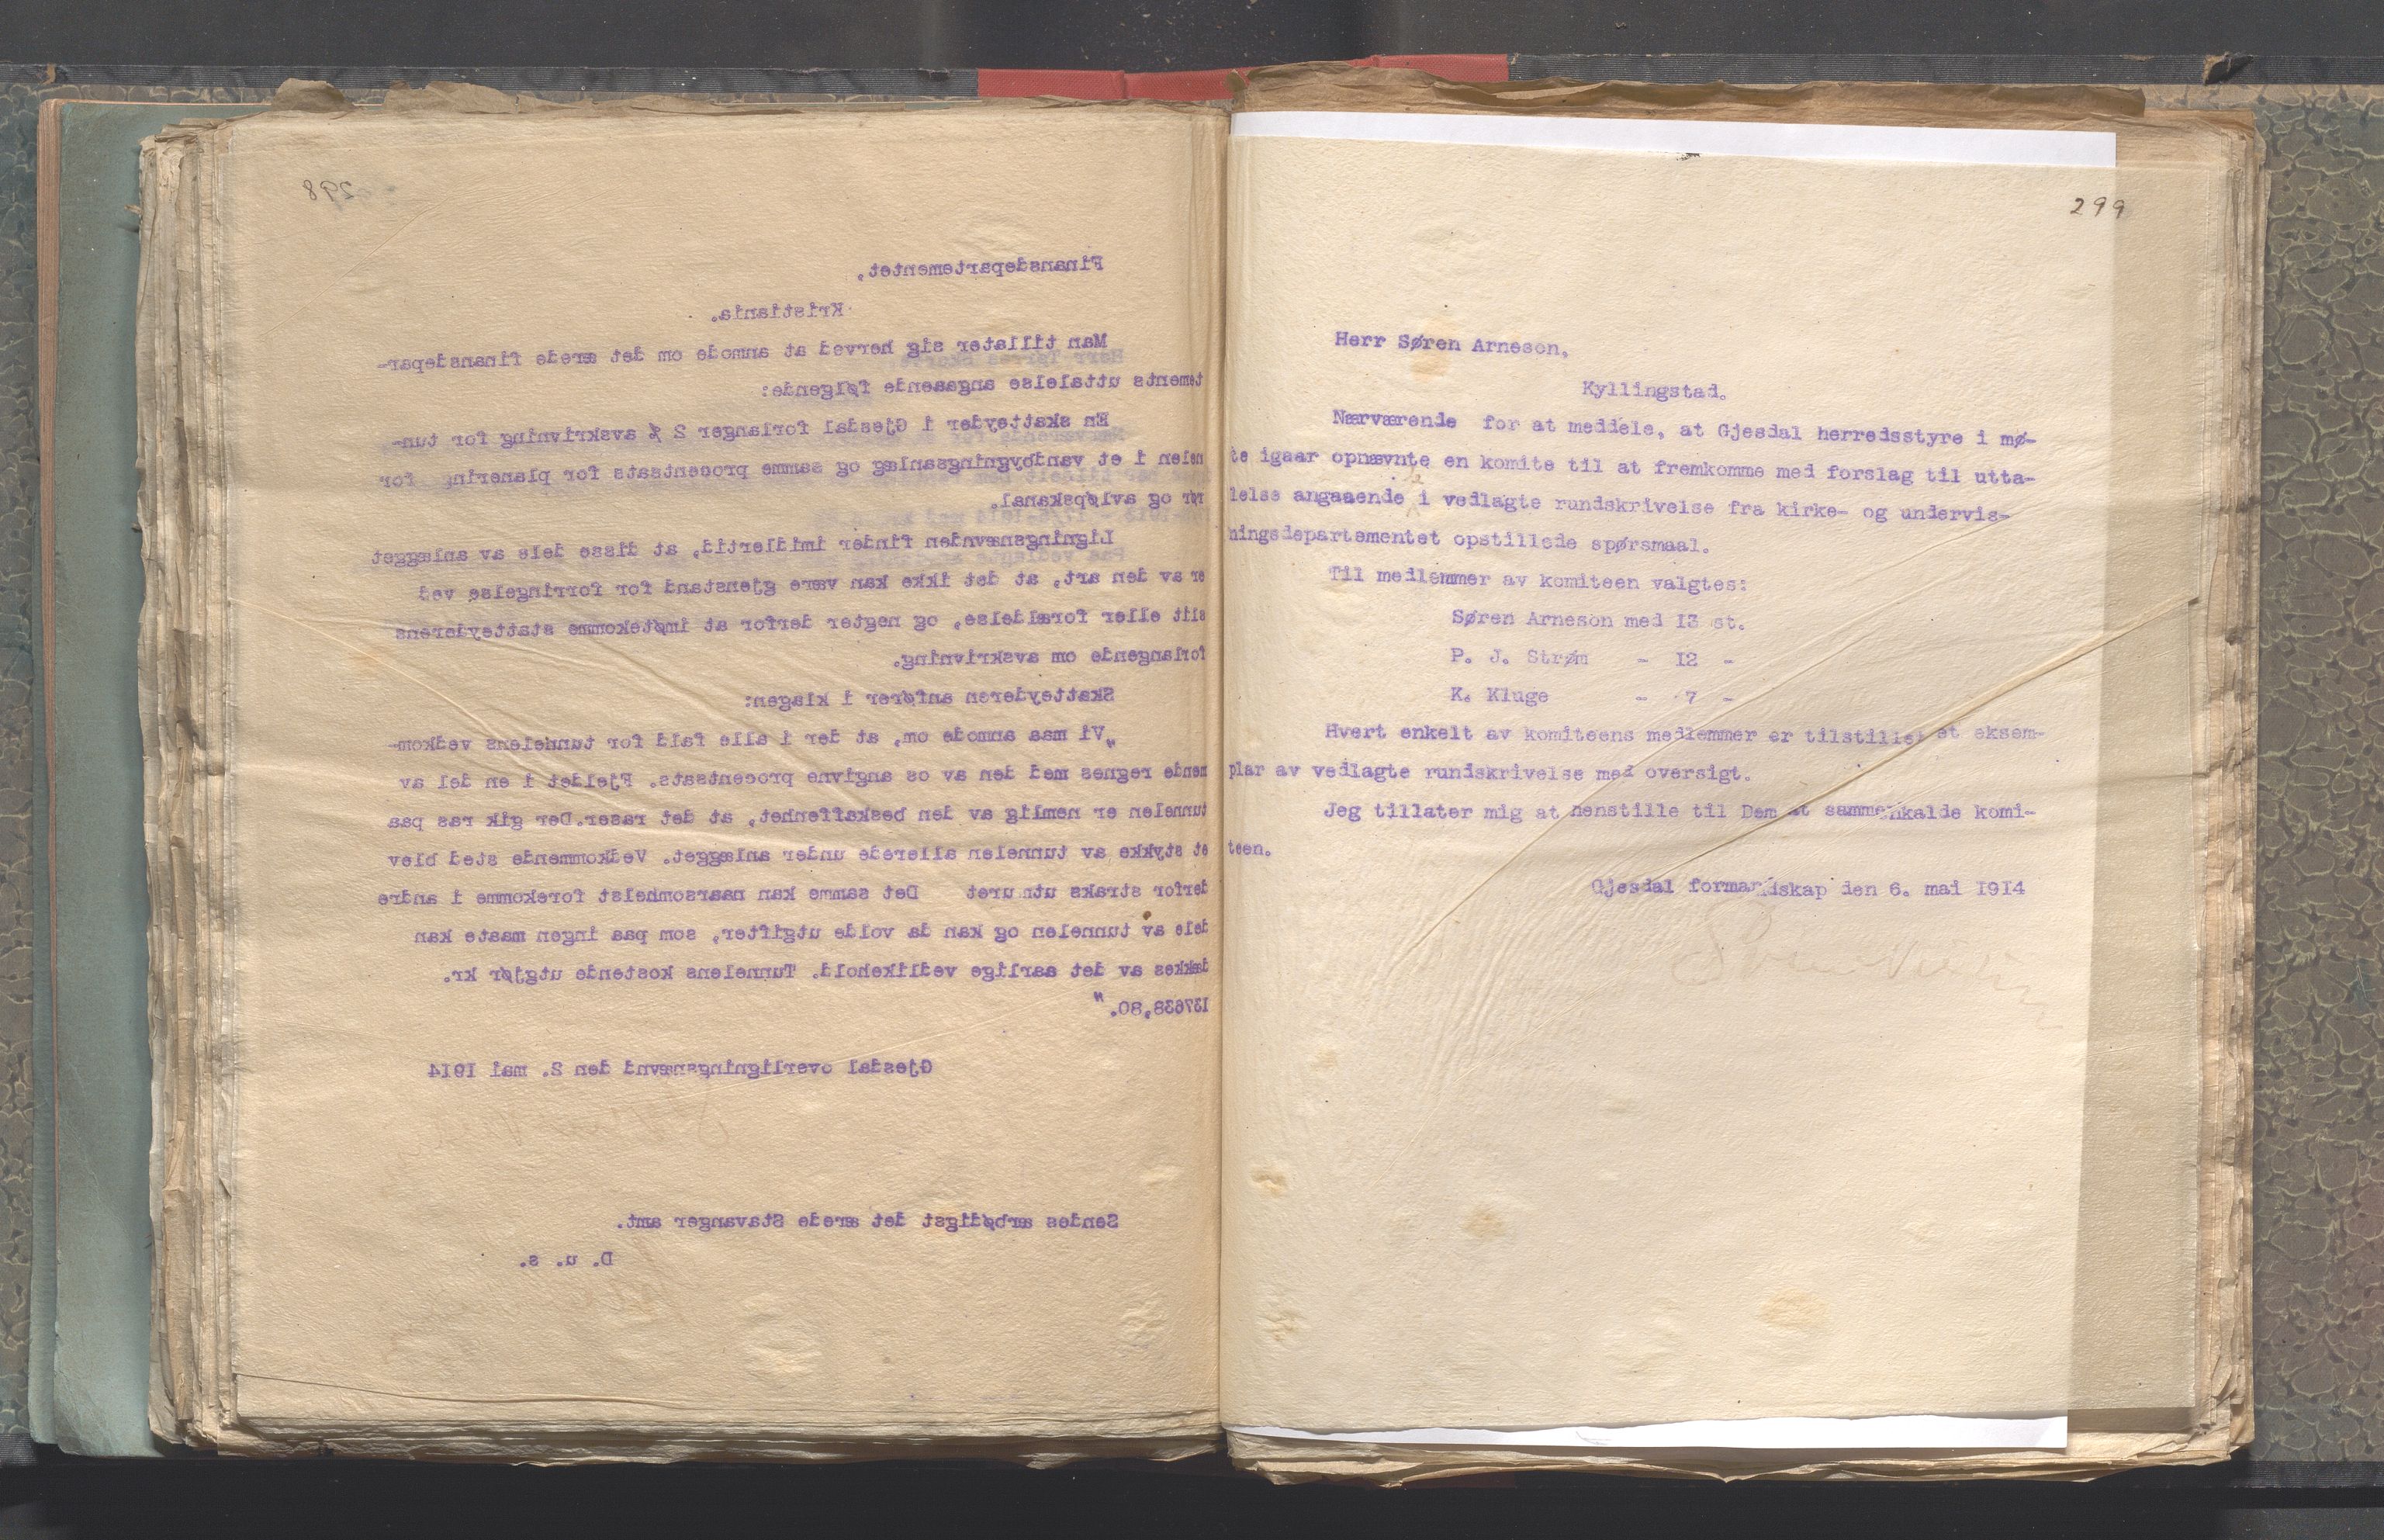 298
Finansdepartementet,
Kristiania.
Man tillater sig herved at anmode om det ærede finansdepar-
tements uttalelse angaaende følgende:
En skatteyder i Gjesdal forlanger 2 % avskrivning for tun-
nelen i et vandbygningsanlæg og samme procentsats for planering for
rør og avløpskanal.
Ligningsnævnden finder imidlertid, at disse dele av anlægget
er av den art, at det ikke kan være gjenstand for forringelse ved
slit eller forældelse, og negter derfor at imøtekomme statteyderens
forlangende om avskrivning.
Skatteyderen anfører i klagen:
„Vi maa anmode om, at der i alle fald for tunnelens vedkom-
mende regnes med den av os angivne procentsats. Fjeldet i en del av
tunnelen er nemlig av den beskaffenhet, at det raser.Der gik ras paa
et stykke av tunnelen allerede under anlægget. Vedkommende sted blev
derfor straks utmuret Det samme kan naarsomhelst forekomme i andre
dele av tunnelen og kan da volde utgifter, som paa ingen maate kan
dækkes av det aarlige vedlikehold. Tunnelens kostende utgjør kr.
137638,80."
Gjesdal overligningsnævnd den 2. mai 1914
Sendes ærbødigst det ærede Stavanger amt.
D. u. s.
299
Herr Søren Arneson,
Kyllingstad.
Nærværende for at meddele, at Gjesdal herredsstyre i mø-
te igaar opnævnte en komite til at fremkomme med forslag til utta-
lelse angaaende i vedlagte rundskrivelse fra kirke- og undervis-
ningsdepartementet opstillede spørsmaal.
Til medlemmer av komiteen valgtes:
Søren Arneson med 13 st.
P. J. Strøm - 12 -
K. Kluge - 7 -
Hvert enkelt av komiteens medlemmer er tilstillet et eksem-
plar av vedlagte rundskrivelse med oversigt.
Jeg tillater mig at henstille til Dem at sammenkalde komi-
teen.
Gjesdal formandskap den 6. mai 1914